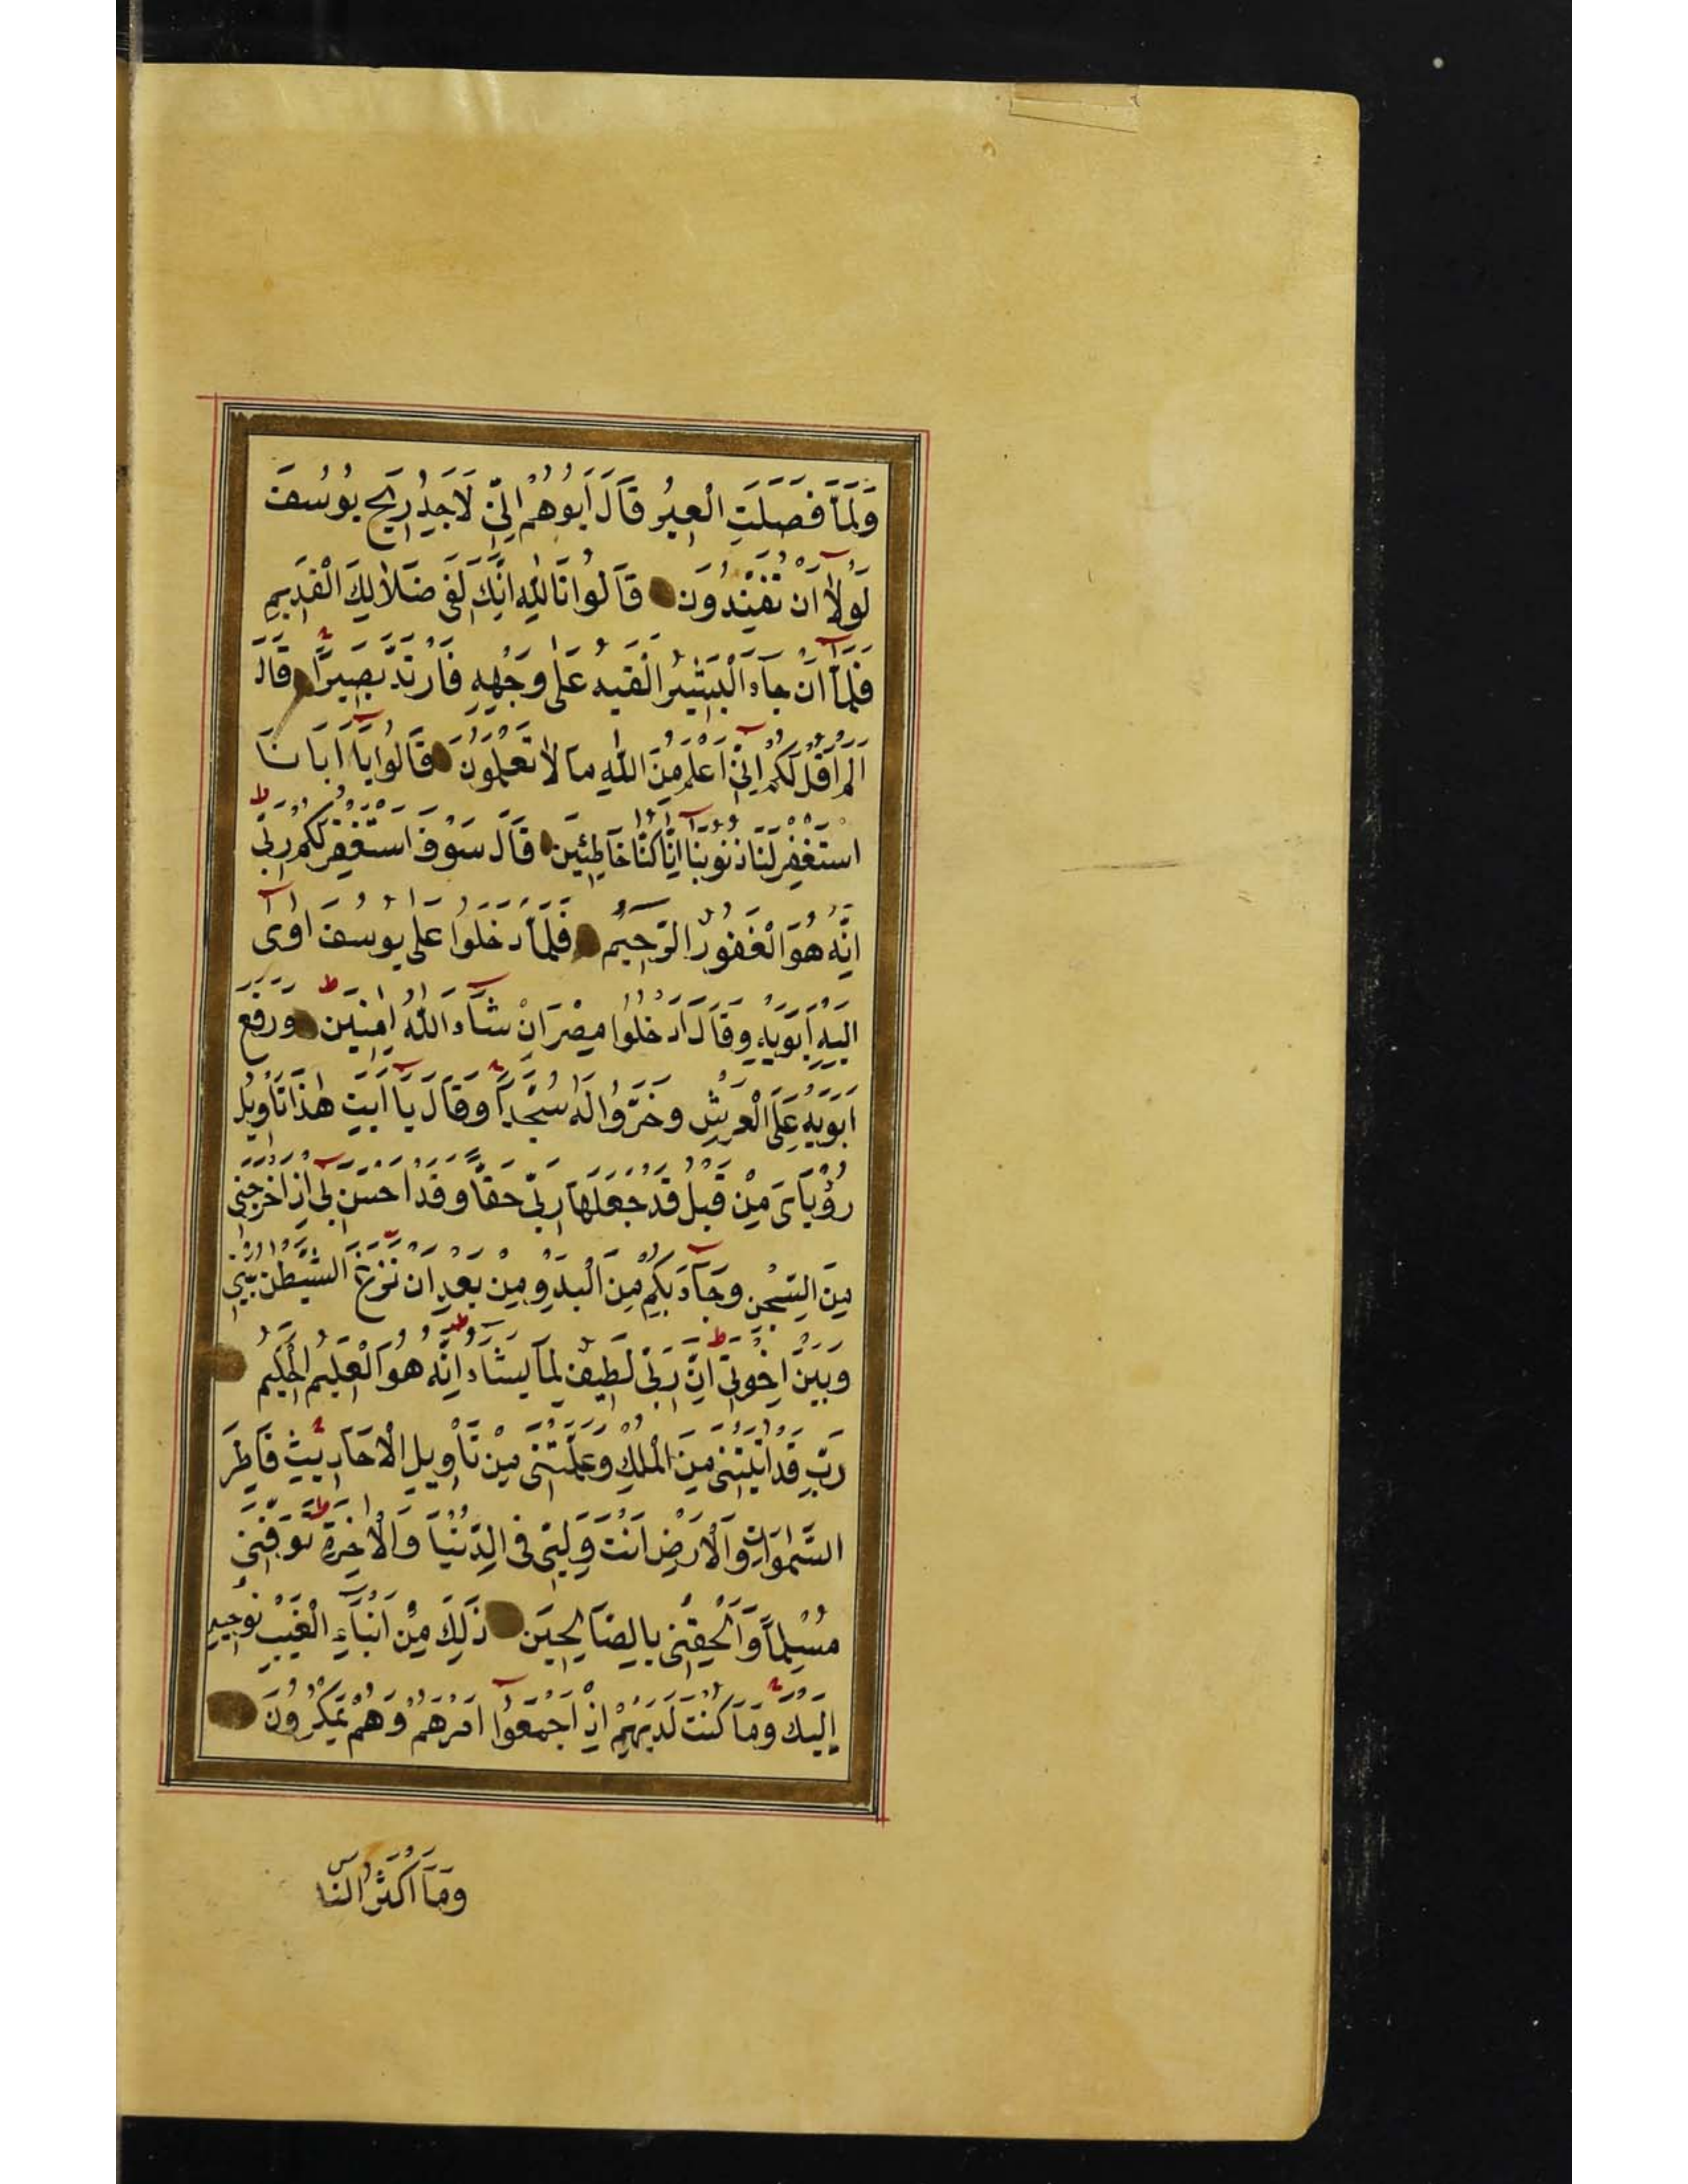 وَلَمَّا فَصَلَتِ الْعِيرُ قَالَ أَبُوهُمْ اِنِّي لَاَجِدُ رِيحَ يُوسُفَ
لَوْلَا اَنْ تُفَنِّدُونَ قَالُوا تَاللّٰهِ اِنَّكَ لَفِي ضَلَالِكَ الْقَدِيمِ
فَلَمَّا اَنْ جَاءَ الْبَشِيرُ اَلْقَيهُ عَلٰى وَجْهِهِ فَارْتَدَّ بَصِيرًا قَالَ
اَلَمْ اَقُلْ لَكُمْ اِنِّي اَعْلَمُ مِنَ اللّٰهِ مَا لَا تَعْلَمُونَ قَالُوا يَا اَبَانَا
اسْتَغْفِرْ لَنَا ذُنُوبَنَا اِنَّا كُنَّا خَاطِئِينَ قَالَ سَوْفَ اَسْتَغْفِرُ لَكُمْ رَبِّي
اِنَّهُ هُوَ الْغَفُورُ الرَّحِيمُ فَلَمَّا دَخَلُوا عَلٰى يُوسُفَ اٰوٰى
اِلَيْهِ اَبَوَيْهِ وَقَالَ ادْخُلُوا مِصْرَ اِنْ شَاءَ اللّٰهُ اٰمِنِينَ وَرَفَعَ
اَبَوَيْهِ عَلَى الْعَرْشِ وَخَرُّوا لَهُ سُجَّدًا وَقَالَ يَا اَبَتِ هٰذَا تَأْوِيلُ
رُؤْيَايَ مِنْ قَبْلُ قَدْ جَعَلَهَا رَبِّي حَقًّا وَقَدْ اَحْسَنَ بِي اِذْ اَخْرَجَنِي
مِنَ السِّجْنِ وَجَاءَ بِكُمْ مِنَ الْبَدْوِ مِنْ بَعْدِ اَنْ نَزَغَ الشَّيْطٰنُ بَيْنِي
وَبَيْنَ اِخْوَتِي اِنَّ رَبِّي لَطِيفٌ لِمَا يَشَاءُ اِنَّهُ هُوَ الْعَلِيمُ الْحَكِيمُ
رَبِّ قَدْ اٰتَيْتَنِي مِنَ الْمُلْكِ وَعَلَّمْتَنِي مِنْ تَأْوِيلِ الْاَحَادِيثِ فَاطِرَ
السَّمٰوَاتِ وَالْاَرْضِ اَنْتَ وَلِيِّي فِي الدُّنْيَا وَالْاٰخِرَةِ تَوَفَّنِي
مُسْلِمًا وَاَلْحِقْنِي بِالصَّالِحِينَ ذٰلِكَ مِنْ اَنْبَاءِ الْغَيْبِ نُوحِيهِ
اِلَيْكَ وَمَا كُنْتَ لَدَيْهِمْ اِذْ اَجْمَعُوا اَمْرَهُمْ وَهُمْ يَمْكُرُونَ
وَمَا اَكْثَرُ النَّاسِ